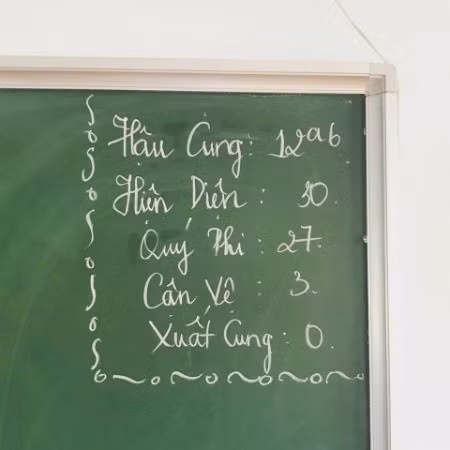 Hậu Cung: 12a6
Hiện Diện: 30.
Quý Phi: 27.
Cận Vệ: 3.
Xuất Cung: 0.